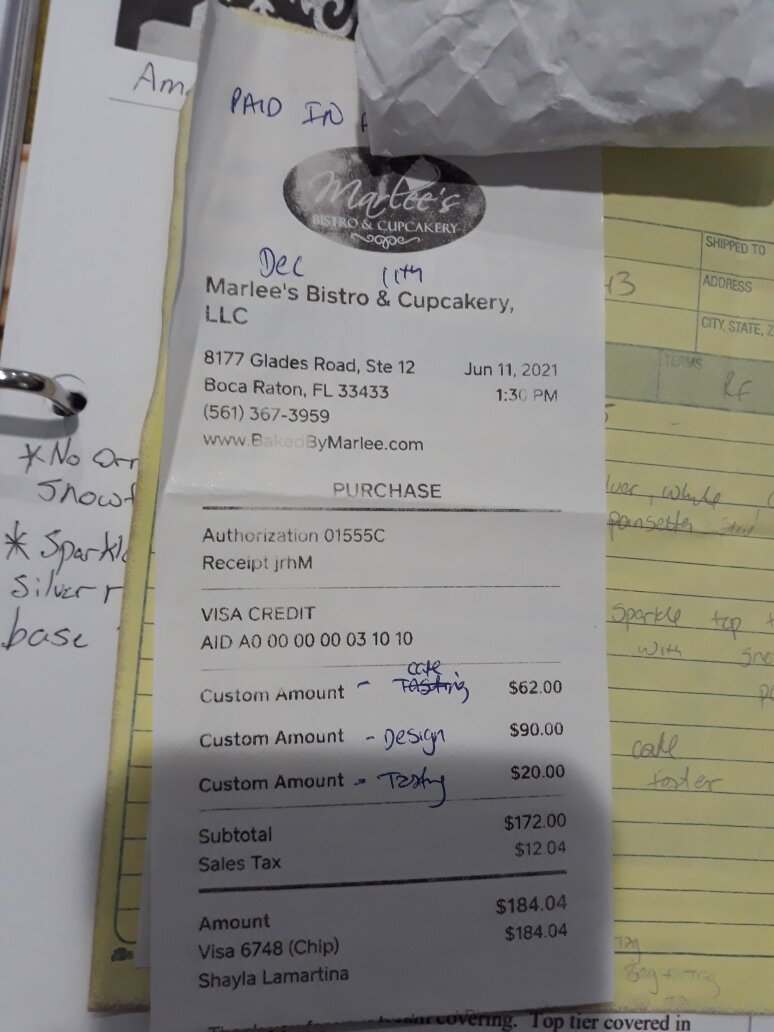 PAID IN
Marlee's
BISTRO & CUPCAKERY
Dec 11th
Marlee's Bistro & Cupcakery,
LLC
8177 Glades Road, Ste 12
Jun 11, 2021
Boca Raton, FL 33433
1:30 PM
(561) 367-3959
www.BakedByMarlee.com
PURCHASE
Authorization 01555C
Receipt jrhM
VISA CREDIT
AID A0 00 00 00 03 10 10
Custom Amount - cake Tasting $62.00
Custom Amount - Design $90.00
Custom Amount - Tasting $20.00
Subtotal $172.00
Sales Tax $12.04
Amount $184.04
Visa 6748 (Chip) $184.04
Shayla Lamartina
Am
* No
Snowf
* Sparkle
Silver r
base
SHIPPED TO
ADDRESS
CITY, STATE, Z
TERMS
RF
white
Sparkle top
with
covering. Top tier covered in